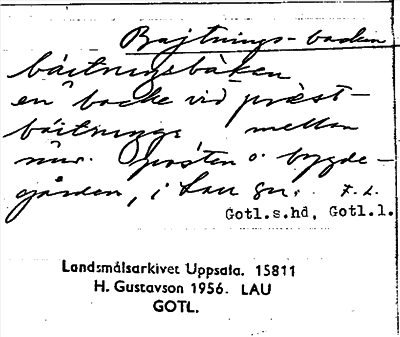 Bajtnings-backen
båitningsbåken
en backe vid präst-
båitninge mellan
nuv. posten o. bygde-
gården, i Lau sn. F. L.
Gotl.s.hd, Gotl.l.
Landsmålsarkivet Uppsala. 15811
H. Gustavson 1956. LAU
GOTL.